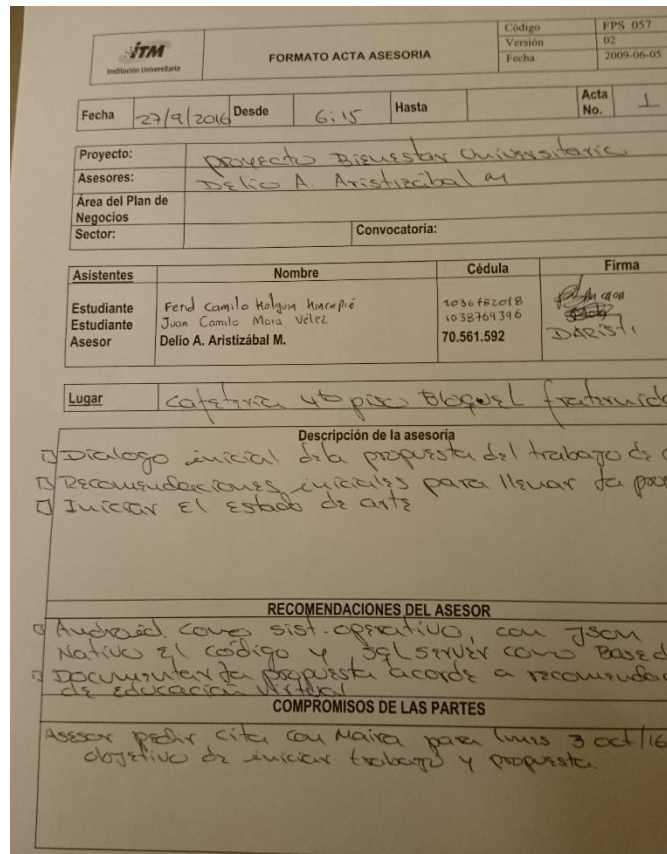 iTM
Institución Universitaria
FORMATO ACTA ASESORIA
Código FPS 057
Versión 02
Fecha 2009-06-05
Fecha 27/9/2016 Desde 6:15 Hasta Acta No. 1
Proyecto: proyecto Bienestar Universitario
Asesores: Delio A. Aristizábal
Área del Plan de
Negocios
Sector: Convocatoria:
Asistentes Nombre Cédula Firma
Estudiante Camilo Holguin Hincapié
Estudiante Juan Camilo Mora Vélez 1038769396
Asesor Delio A. Aristizábal M. 70.561.592 DARISTI
Lugar Cafetería 4to piso Bloque
Descripción de la asesoría
Dialogo inicial de la propuesta del trabajo de
Recomendaciones iniciales para llevar la
Iniciar El Estado de arte
RECOMENDACIONES DEL ASESOR
Android como sist. operativo, con Json
Nativo El código y sqlserver como Base d
Documentar la propuesta acorde a
de educación virtual
COMPROMISOS DE LAS PARTES
Asesor pedir cita con Maira para lunes 3 oct/16
objetivo de iniciar trabajo y propuesta.